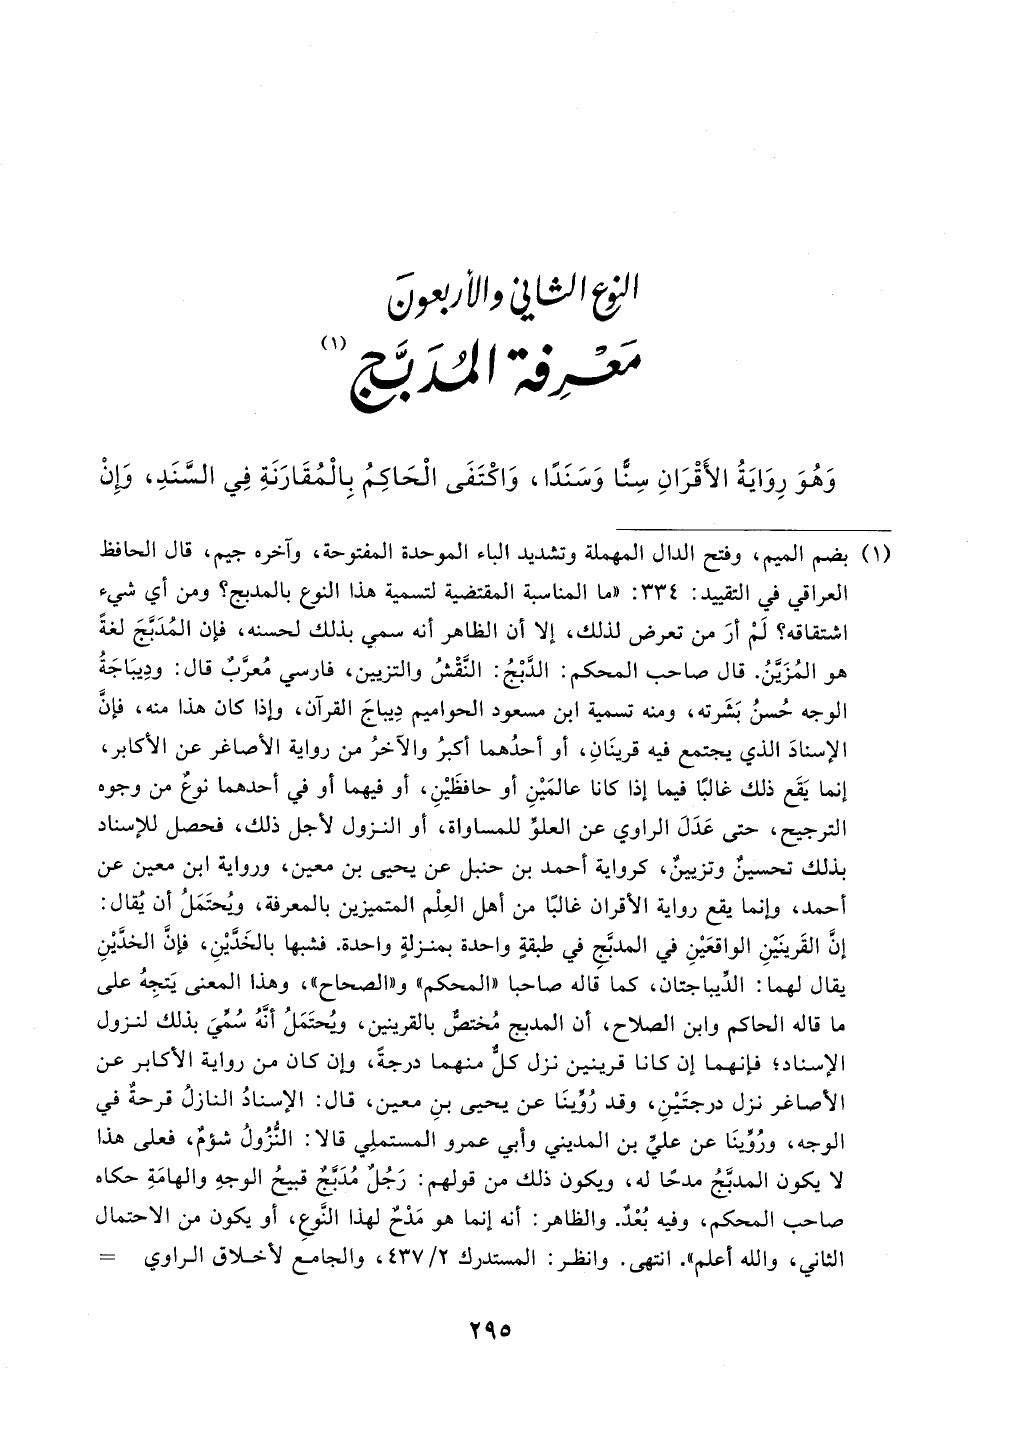 النوع الثاني والأربعونَ
مَعْرِفة المُدَبَّج (١)
وَهُوَ رِوَايَةُ الأَقْرَانِ سِنًّا وَسَنَدًا، وَاكْتَفَى الْحَاكِمُ بِالْمُقَارَنَةِ فِي السَّنَدِ، وَإِنْ
(١) بضم الميم، وفتح الدال المهملة وتشديد الباء الموحدة المفتوحة، وآخره جيم، قال الحافظ
العراقي في التقييد: ٣٣٤: «ما المناسبة المقتضية لتسمية هذا النوع بالمدبج؟ ومن أي شيء
اشتقاقه؟ لَمْ أرَ من تعرض لذلك، إلا أن الظاهر أنه سمي بذلك لحسنه، فإن المُدَبَّجَ لغةً
هو المُزَيَّنُ. قال صاحب المحكم: الدَّبْجُ: النَّقْشُ والتزيين، فارسي مُعرَّبٌ قال: ودِيبَاجَةُ
الوجه حُسنُ بَشَرته، ومنه تسمية ابن مسعود الحواميم دِيباجَ القرآن، وإذا كان هذا منه، فإنَّ
الإسنادَ الذي يجتمع فيه قرينَانِ، أو أحدُهما أكبرُ والآخرُ من رواية الأصاغر عن الأكابر،
إنما يَقَع ذلك غالبًا فيما إذا كانا عالمَيْنِ أو حافظَيْنِ، أو فيهما أو في أحدهما نوعٌ من وجوه
الترجيح، حتى عَدَلَ الراوي عن العلوِّ للمساواة، أو النـزول لأجل ذلك، فحصل للإسناد
بذلك تحسينٌ وتزيينٌ، كرواية أحمد بن حنبل عن يحيى بن معين، ورواية ابن معين عن
أحمد، وإنما يقع رواية الأقران غالبًا من أهل العِلْم المتميزين بالمعرفة، ويُحتَمَلُ أن يُقال:
إنَّ القَرينَيْنِ الواقعَيْنِ في المدبَّجِ في طبقةٍ واحدة بمنـزلةٍ واحدة. فشبها بالخَدَّيْنِ، فإنَّ الخدَّيْنِ
يقال لهما: الدِّيباجتان، كما قاله صاحبا «المحكم» و«الصحاح»، وهذا المعنى يَتجِهُ على
ما قاله الحاكم وابن الصلاح، أن المدبج مُختصٌّ بالقرينين، ويُحتَمَلُ أنَّهُ سُمِّيَ بذلك لنـزول
الإسناد؛ فإنهما إن كانا قرينين نزل كلٌّ منهما درجةً، وإن كان من رواية الأكابر عن
الأصاغر نزل درجتَيْنِ، وقد رُوِّينَا عن يحيى بنِ معين، قال: الإسنادُ النازلُ قرحةٌ في
الوجه، ورُوِّينَا عن عليِّ بن المديني وأبي عمرو المستملِي قالا: النُّزُولُ شؤمٌ، فعلى هذا
لا يكون المدبَّجُ مدحًا له، ويكون ذلك من قولهم: رَجُلٌ مُدَبَّجٌ قبيحُ الوجهِ والهامَةِ حكاه
صاحب المحكم، وفيه بُعْدٌ. والظاهر: أنه إنما هو مَدْحٌ لهذا النَّوعِ، أو يكون من الاحتمال
الثاني، والله أعلم». انتهى. وانظـر: المستدرك ٢/ ٤٣٧، والجامع لأخـلاق الـراوي =
٢٩٥